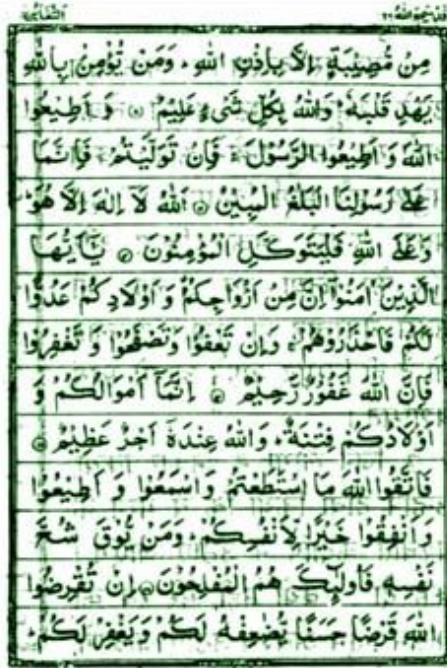 التغابن ٦٤
قد سمع الله ٢٨
مِنْ مُّصِيْبَةٍ اِلَّا بِاِذْنِ اللّٰهِ ؕ وَمَنْ يُّؤْمِنْۢ بِاللّٰهِ
يَهْدِ قَلْبَهٗ ؕ وَاللّٰهُ بِكُلِّ شَىْءٍ عَلِيْمٌ ۝ وَ اَطِيْعُوا
اللّٰهَ وَ اَطِيْعُوا الرَّسُوْلَ ۚ فَاِنْ تَوَلَّيْتُمْ فَاِنَّمَا
عَلٰى رَسُوْلِنَا الْبَلٰغُ الْمُبِيْنُ ۝ اَللّٰهُ لَاۤ اِلٰهَ اِلَّا هُوَ ؕ
وَعَلَى اللّٰهِ فَلْيَتَوَكَّلِ الْمُؤْمِنُوْنَ ۝ يٰۤاَيُّهَا
الَّذِيْنَ اٰمَنُوْۤا اِنَّ مِنْ اَزْوَاجِكُمْ وَ اَوْلَادِكُمْ عَدُوًّا
لَّكُمْ فَاحْذَرُوْهُمْ ۚ وَاِنْ تَعْفُوْا وَتَصْفَحُوْا وَ تَغْفِرُوْا
فَاِنَّ اللّٰهَ غَفُوْرٌ رَّحِيْمٌ ۝ اِنَّمَاۤ اَمْوَالُكُمْ وَ
اَوْلَادُكُمْ فِتْنَةٌ ؕ وَاللّٰهُ عِنْدَهٗۤ اَجْرٌ عَظِيْمٌ ۝
فَاتَّقُوا اللّٰهَ مَا اسْتَطَعْتُمْ وَاسْمَعُوْا وَ اَطِيْعُوْا
وَ اَنْفِقُوْا خَيْرًا لِّاَنْفُسِكُمْ ؕ وَمَنْ يُّوْقَ شُحَّ
نَفْسِهٖ فَاُولٰٓئِكَ هُمُ الْمُفْلِحُوْنَ ۝ اِنْ تُقْرِضُوا
اللّٰهَ قَرْضًا حَسَنًا يُّضٰعِفْهُ لَكُمْ وَيَغْفِرْ لَكُمْ ؕ